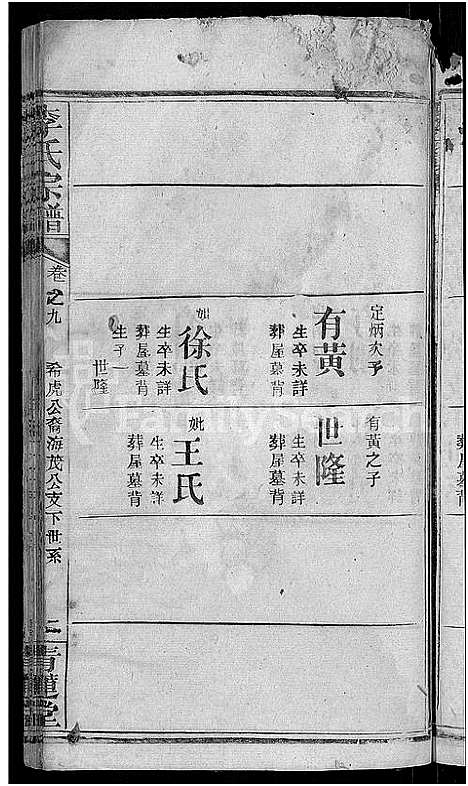 定炳次子
有黃
生卒未詳
葬屋墓背
妣
徐氏
生卒未詳
葬屋墓背
生子一
世隆
有黃之子
世隆
生卒未詳
葬屋墓背
妣
王氏
生卒未詳
葬屋墓背
李氏宗譜
卷之九
希虎公裔海茂公支下世系
二
青蓮堂
FamilySearch